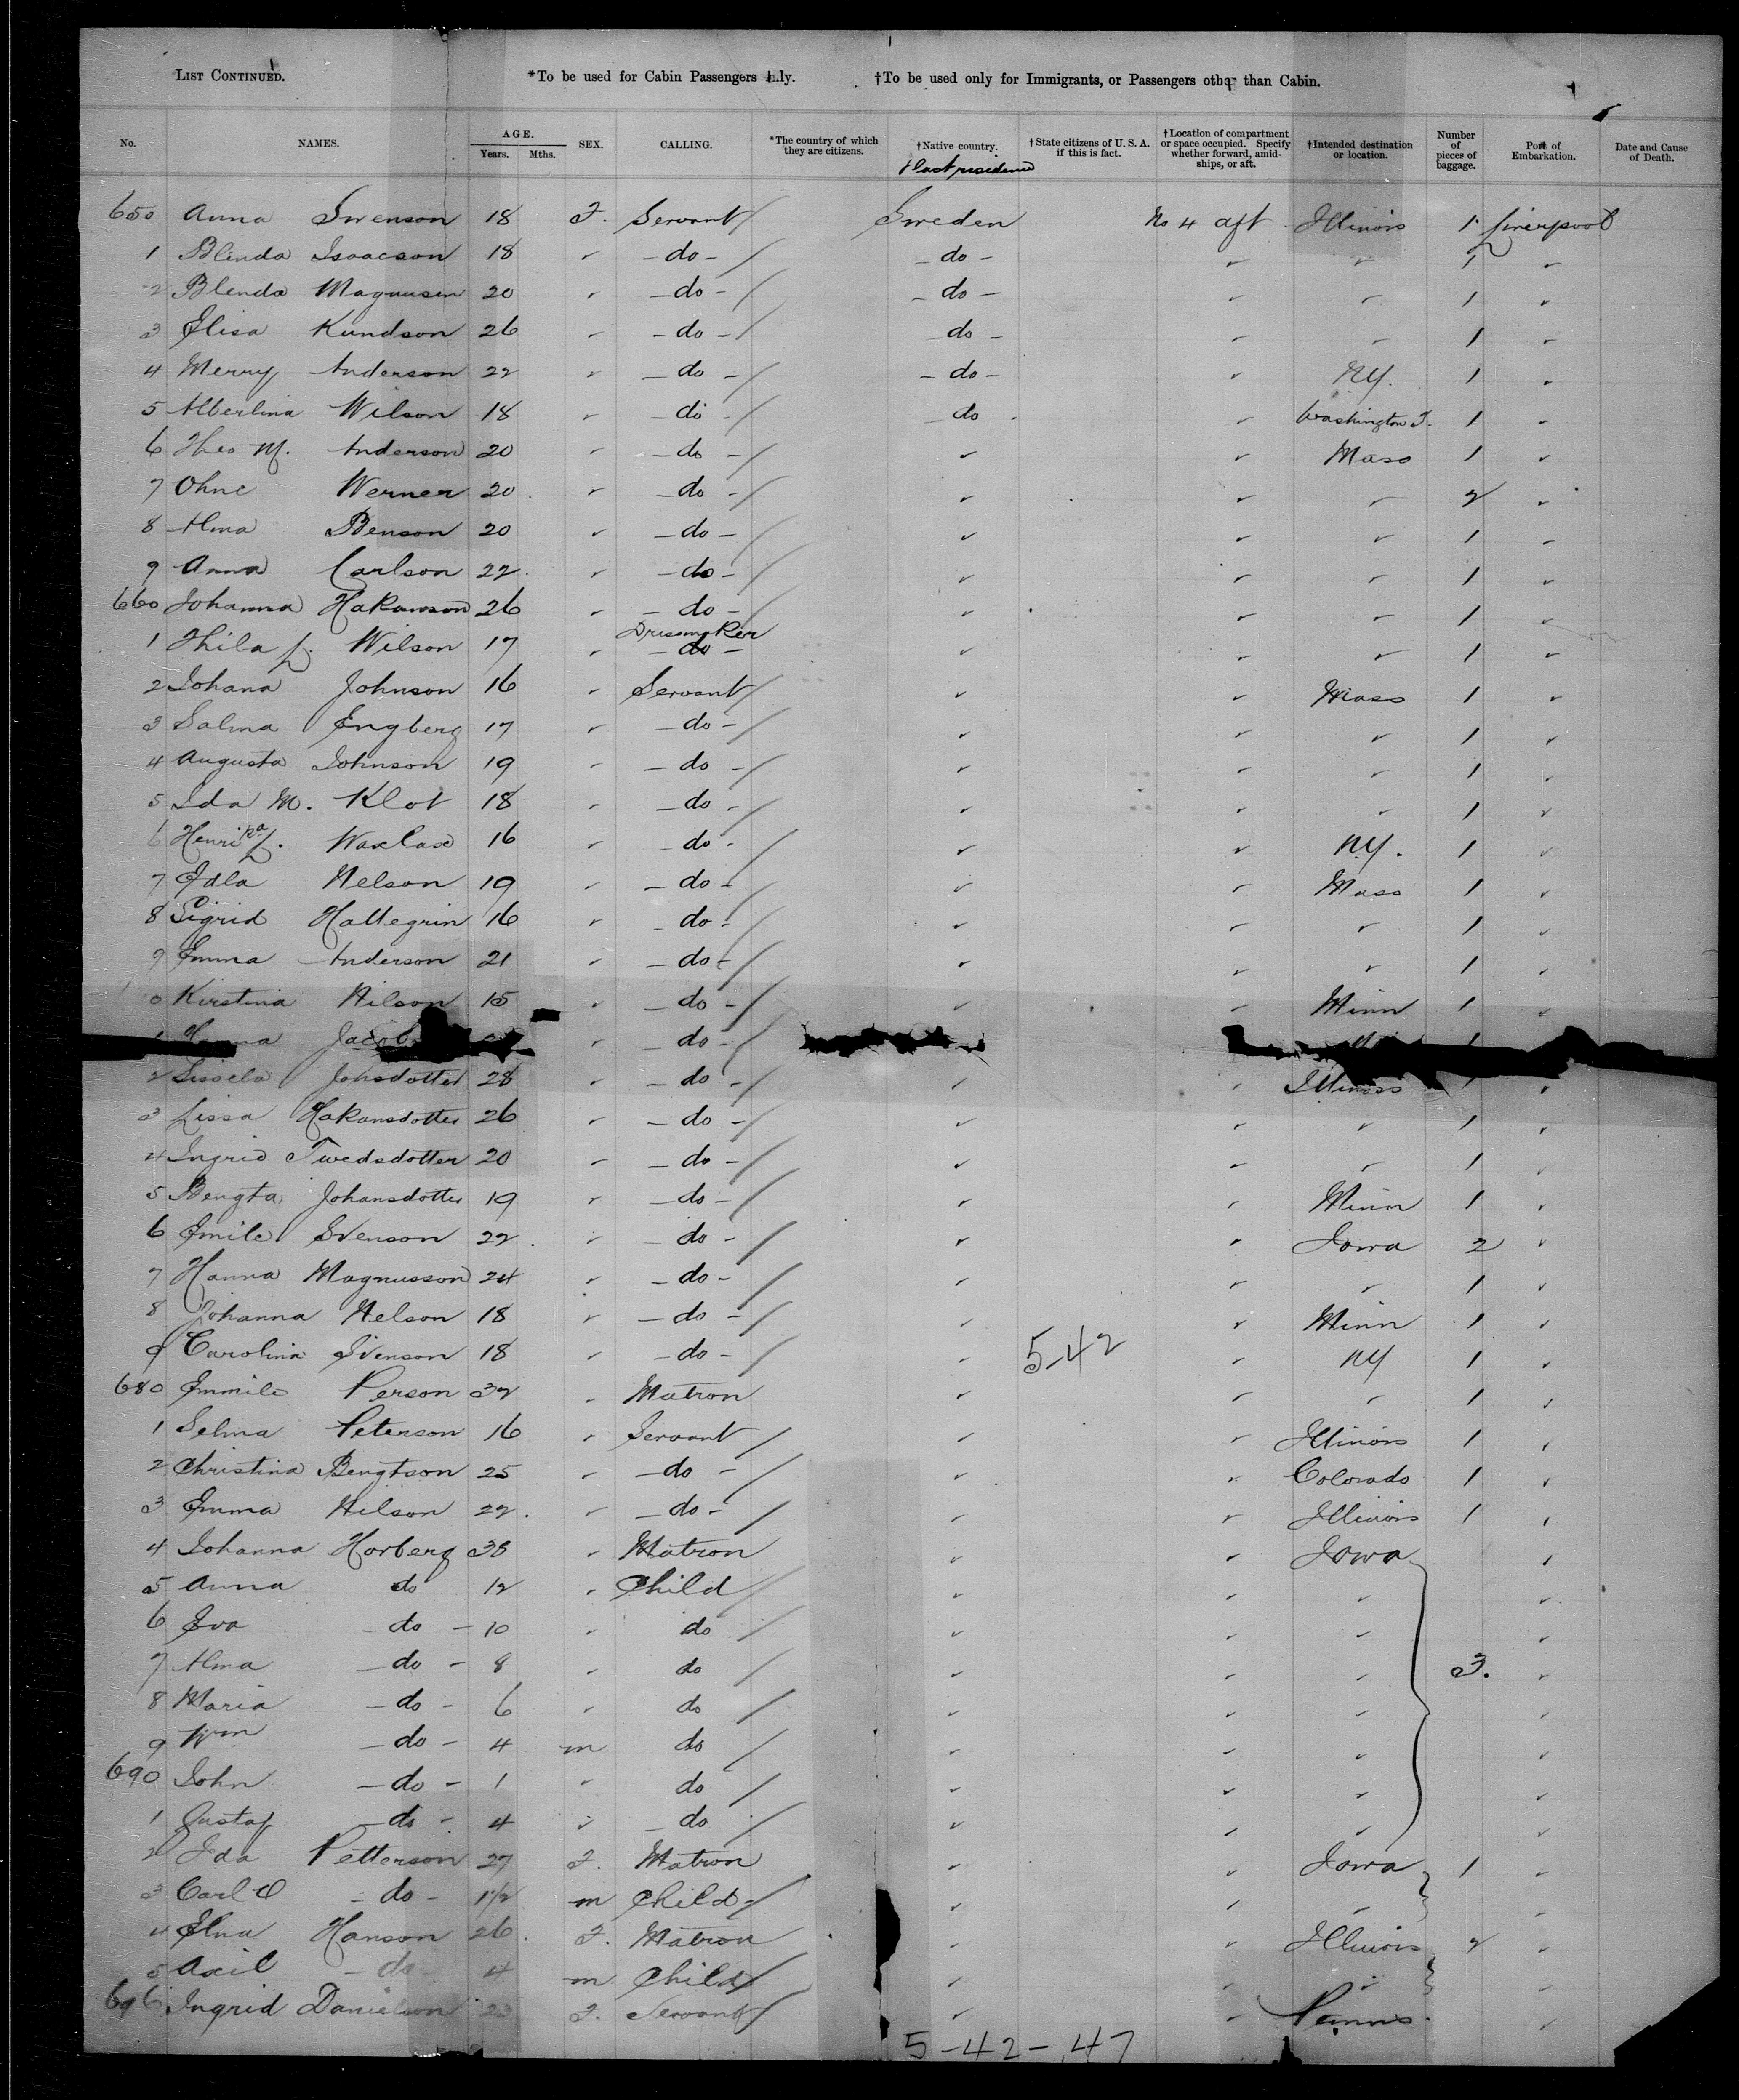 LIST CONTINUED. *To be used for Cabin Passengers only. †To be used only for Immigrants, or Passengers other than Cabin.
No. NAMES. AGE. Years. Mths. SEX. CALLING. *The country of which they are citizens. †Native country. †State citizens of U. S. A. if this is fact. †Location of compartment or space occupied. Specify whether forward, amidships, or aft. †Intended destination or location. Number of pieces of baggage. Port of Embarkation. Date and Cause of Death.
& last residence
650 Anna Swenson 18 F. Servant / Sweden No 4 aft Illinois 1 Liverpool
1 Blenda Isaacson 18 " - do - / - do - " " 1 "
2 Blenda Magnusen 20 " - do - / - do - " " 1 "
3 Elisa Kundson 26 " - do - / do - " " 1 "
4 Merry Anderson 22 " - do - / - do - " NY. 1 "
5 Alberlina Wilson 18 " - do - / - do " Washington T. 1 "
6 Theo M. Anderson 20 " - do - / " " Mass 1 "
7 Ohne Werner 20 " - do - / " " " 2 "
8 Alma Benson 20 " - do - / " " " 1 "
9 Anna Carlson 22 " - do - / " " " 1 "
660 Johanna Hakanson 26 " - do - / " " " 1 "
1 Thila L. Wilson 17 " Dressmaker - do - " " " 1 "
2 Johana Johnson 16 " Servant / " " Mass 1 "
3 Salma Engberg 17 " - do - / " " " 1 "
4 Augusta Johnson 19 " - do - / " " " 1 "
5 Ida M. Klot 18 " - do - / " " " 1 "
6 Henrika L. Waxlax 16 " - do - / " " NY. 1 "
7 Edla Nelson 19 " - do - / " " Mass 1 "
8 Sigrid Hallegrin 16 " do - / " " " 1 "
9 Emma Anderson 21 " - do - / " " " 1 "
0 Kirstina Nilson 15 " - do - / " " Minn 1 "
1 Hanna " - do - /
2 Sissela Jonsdotter 28 " - do - / " " Illinois 1 "
3 Lissa Hakansdotter 26 " - do - / " " " 1 "
4 Ingrid Twedsdotter 20 " - do - / " " " 1 "
5 Bengta Johansdotter 19 " - do - / " " Minn 1 "
6 Emile Svenson 22 " - do - / " " Iowa 2 "
7 Hanna Magnusson 24 " - do - / " " " 1 "
8 Johanna Nelson 18 " - do - / " " Minn 1 "
9 Carolina Svenson 18 " - do - / " 5-42 " NY 1 "
680 Emmile Person 32 " Matron " " " 1 "
1 Selma Peterson 16 " Servant / " " Illinois 1 "
2 Christina Bengtson 25 " - do - / " " Colorado 1 "
3 Emma Nilson 22 " - do - / " " Illinois 1 "
4 Johanna Horberg 38 " Matron " " Iowa "
5 Anna do 12 " Child / " " " "
6 Eva - do - 10 " do / " " " "
7 Alma - do - 8 " do / " " " 3. "
8 Maria - do - 6 " do / " " " "
9 Wm - do - 4 m do / " " " "
690 John - do - 1 " do / " " " "
1 Gustaf - do - 4 " - do / " " " "
2 Ida Petterson 27 F. Matron " " Iowa 1 "
3 Carl O - do - 1 1/2 m Child - / " " " "
4 Elna Hanson 26 F. Matron " " Illinois 2 "
5 Axil - do - 4 m Child / " " " "
696 Ingrid Danielson 23 F. Servant / " " "
5-42-47